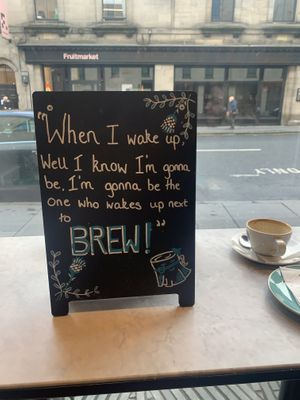 Fruitmarket
"When I wake up,
Well I know I'm gonna
be, I'm gonna be the
one who wakes up next
to
BREW!"